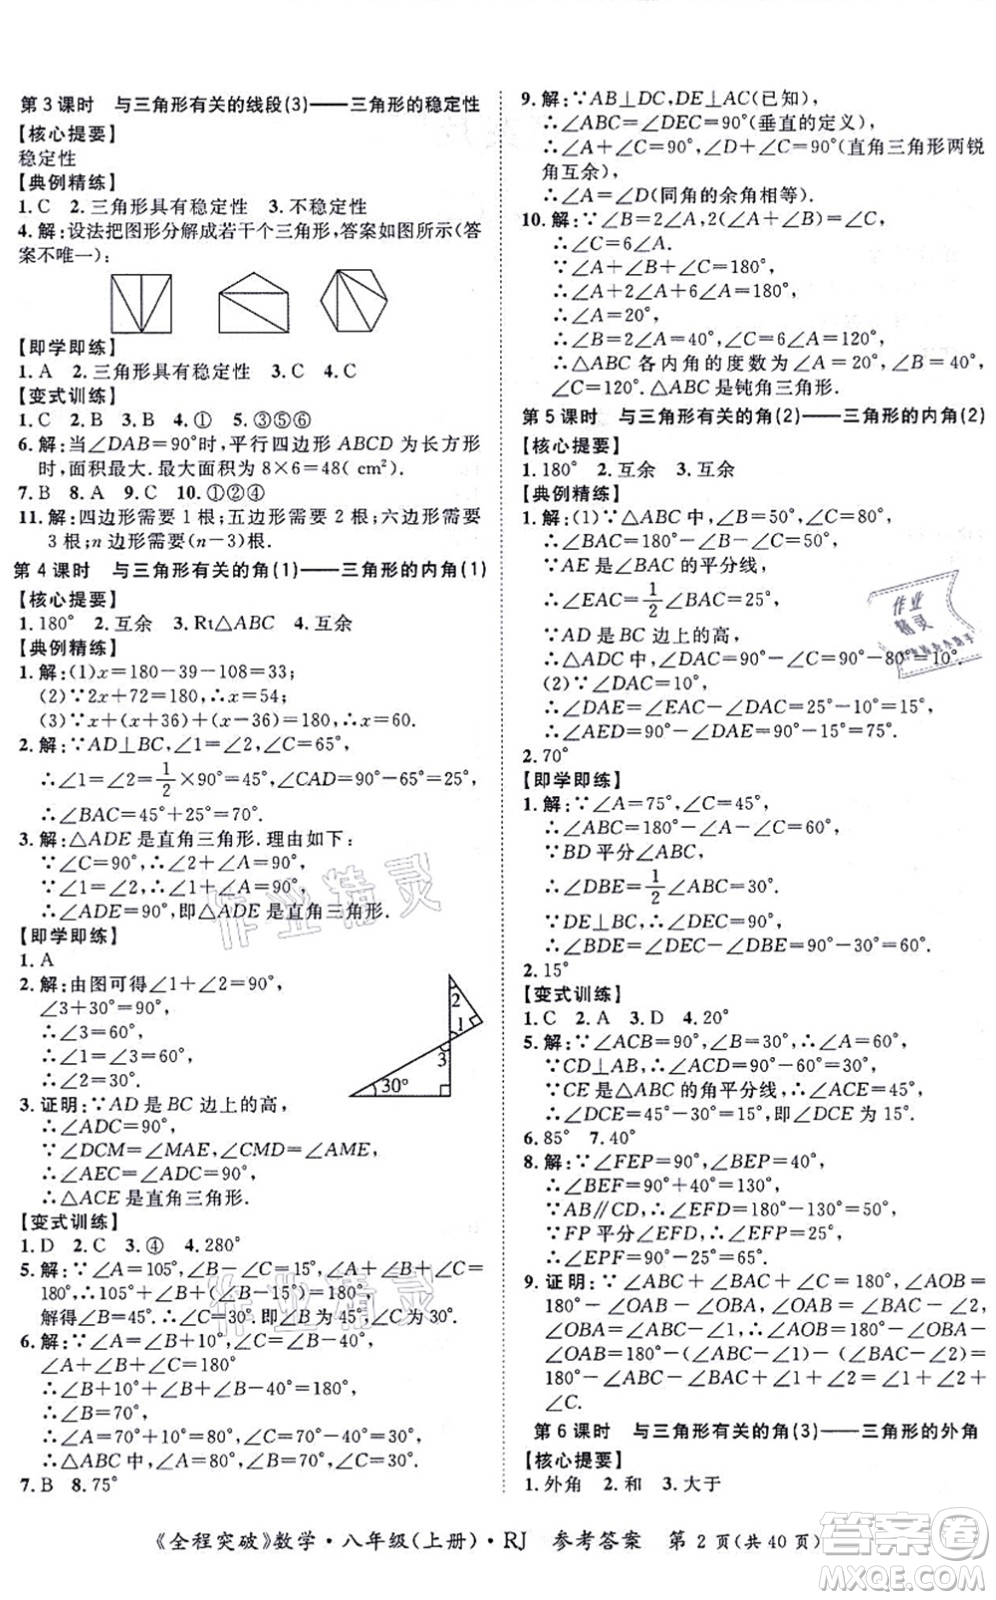 第3课时 与三角形有关的线段(3)——三角形的稳定性
【核心提要】
稳定性
【典例精练】
1. C 2. 三角形具有稳定性 3. 不稳定性
4. 解:设法把图形分解成若干个三角形,答案如图所示(答
案不唯一):
【即学即练】
1. A 2. 三角形具有稳定性 3. C 4. C
【变式训练】
1. C 2. B 3. B 4. ① 5. ③⑤⑥
6. 解:当∠DAB=90°时,平行四边形 ABCD 为长方形
时,面积最大. 最大面积为 8×6=48( cm²).
7. B 8. A 9. C 10. ①②④
11. 解:四边形需要 1 根;五边形需要 2 根;六边形需要
3 根;n 边形需要(n-3)根.
第4课时 与三角形有关的角(1)——三角形的内角(1)
【核心提要】
1. 180° 2. 互余 3. Rt△ABC 4. 互余
【典例精练】
1. 解:(1)x=180-39-108=33;
(2)∵2x+72=180,∴x=54;
(3)∵x+(x+60)=180,∴x=60.
2. 解:∵AD⊥BC,∠1=∠2,∠C=65°,
∴∠1=∠2=1/2×90°=45°,∠CAD=90°-65°=25°,
∴∠BAC=45°+25°=70°.
3. 解:△ADE 是直角三角形. 理由如下:
∵∠C=90°,∴∠2+∠A=90°,
∵∠1=∠2,∴∠1+∠A=90°,
∴∠ADE=90°,即△ADE 是直角三角形.
【即学即练】
1. A
2. 解:由图可得∠1+∠2=90°,
∠3+30°=90°,
∴∠3=60°,
∴∠1=60°,
∴∠2=30°.
2
1
3
30°
3. 证明:∵AD 是 BC 边上的高,
∴∠ADC=90°,
∵∠DCM=∠MAE,∠CMD=∠AME,
∴∠AEC=∠ADC=90°,
∴△ACE 是直角三角形.
【变式训练】
1. D 2. C 3. ④ 4. 280°
5. 解:∵∠A=105°,∠B-∠C=15°,∠A+∠B+∠C=
180°,∴105°+∠C+15°+∠C=180°,
解得∠C=30°. 即∠B 为 45°,∠C 为 30°.
6. 解:∵∠A=∠B+10°,∠C=∠B-40°,
∠A+∠B+∠C=180°
∴∠B+10°+∠B+∠B-40°=180°,
∴∠B=70°,
∴∠A=80°,∠C=30°,
∴∠A=80°,∠B=70°,∠C=30°.
7. B 8. 75°
9. 解:∵AB⊥DC,DE⊥AC(已知),
∴∠ABC=∠DEC=90°(垂直的定义),
∴∠A+∠C=∠D+∠C=90°(直角三角形两锐
角互余),
∴∠A=∠D(同角的余角相等).
10. 解:∵∠B=2∠A,2(∠A+∠B)=∠C,
∴∠C=6∠A.
∵∠A+∠B+∠C=180°,
∴∠A+2∠A+6∠A=180°,
∴∠A=20°,
∴∠B=2∠A=40°,∠C=6∠A=120°.
∴△ABC 各内角的度数为∠A=20°,∠B=40°,
∠C=120°. △ABC 是钝角三角形.
第5课时 与三角形有关的角(2)——三角形的内角(2)
【核心提要】
1. 180° 2. 互余 3. 互余
【典例精练】
1. 解:(1)∵△ABC 中,∠B=50°,∠C=80°,
∴∠BAC=180°-50°-80°=50°,
∵AE 是∠BAC 的平分线,
∴∠EAC=1/2∠BAC=25°,
∵AD 是 BC 边上的高,
∴△ADC 中,∠DAC=180°-90°-80°=10°.
(2)∵∠DAC=10°,
∴∠DAE=∠EAC-∠DAC=25°-10°=15°,
∴∠AED=90°-∠DAE=90°-15°=75°.
2. 70°
【即学即练】
1. 解:∵∠A=75°,∠C=45°,
∴∠ABC=180°-∠A-∠C=60°,
∵BD 平分∠ABC,
∴∠DBE=1/2∠ABC=30°.
∵DE⊥BC,
∴∠BDE=∠DEC-∠DBE=90°-30°=60°.
2. 15°
【变式训练】
1. C 2. A 3. D 4. 20°
5. 解:∵∠ACB=90°,∠A=30°,∴∠B=60°,
∵CD⊥AB,∴∠ACD=90°-30°=60°,
∵CE 是△ABC 的角平分线,∴∠ACE=45°,
∴∠DCE=45°-30°=15°,即∠DCE 为 15°.
6. 85° 7. 40°
8. 解:∵∠FEP=90°,∠BEP=40°,
∴∠BEF=90°+40°=130°,
∵AB∥CD,∴∠EFD=180°-130°=50°,
∵FP 平分∠EFD,∴∠EFP=25°,
∴∠EPF=90°-25°=65°.
9. 证明:∵∠BAC+∠ABC+∠C=180°,∠AOB=
180°-∠OAB-∠OBA,∴∠AOB-∠C=
180°-∠OAB-∠OBA-(180°-2∠OAB-2
∠OBA)=∠OAB+∠OBA=180°-∠AOB,
∴∠AOB-∠C=180°-∠AOB,∴2∠AOB=180°+
∠C.
第6课时 与三角形有关的角(3)——三角形的外角
【核心提要】
1. 外角 2. 和 3. 大于
《全程突破》数学·八年级(上册)·RJ 参考答案 第 2 页(共 40 页)
作业精灵
作业精灵
作业
精灵
答案圈
MXQE.COM